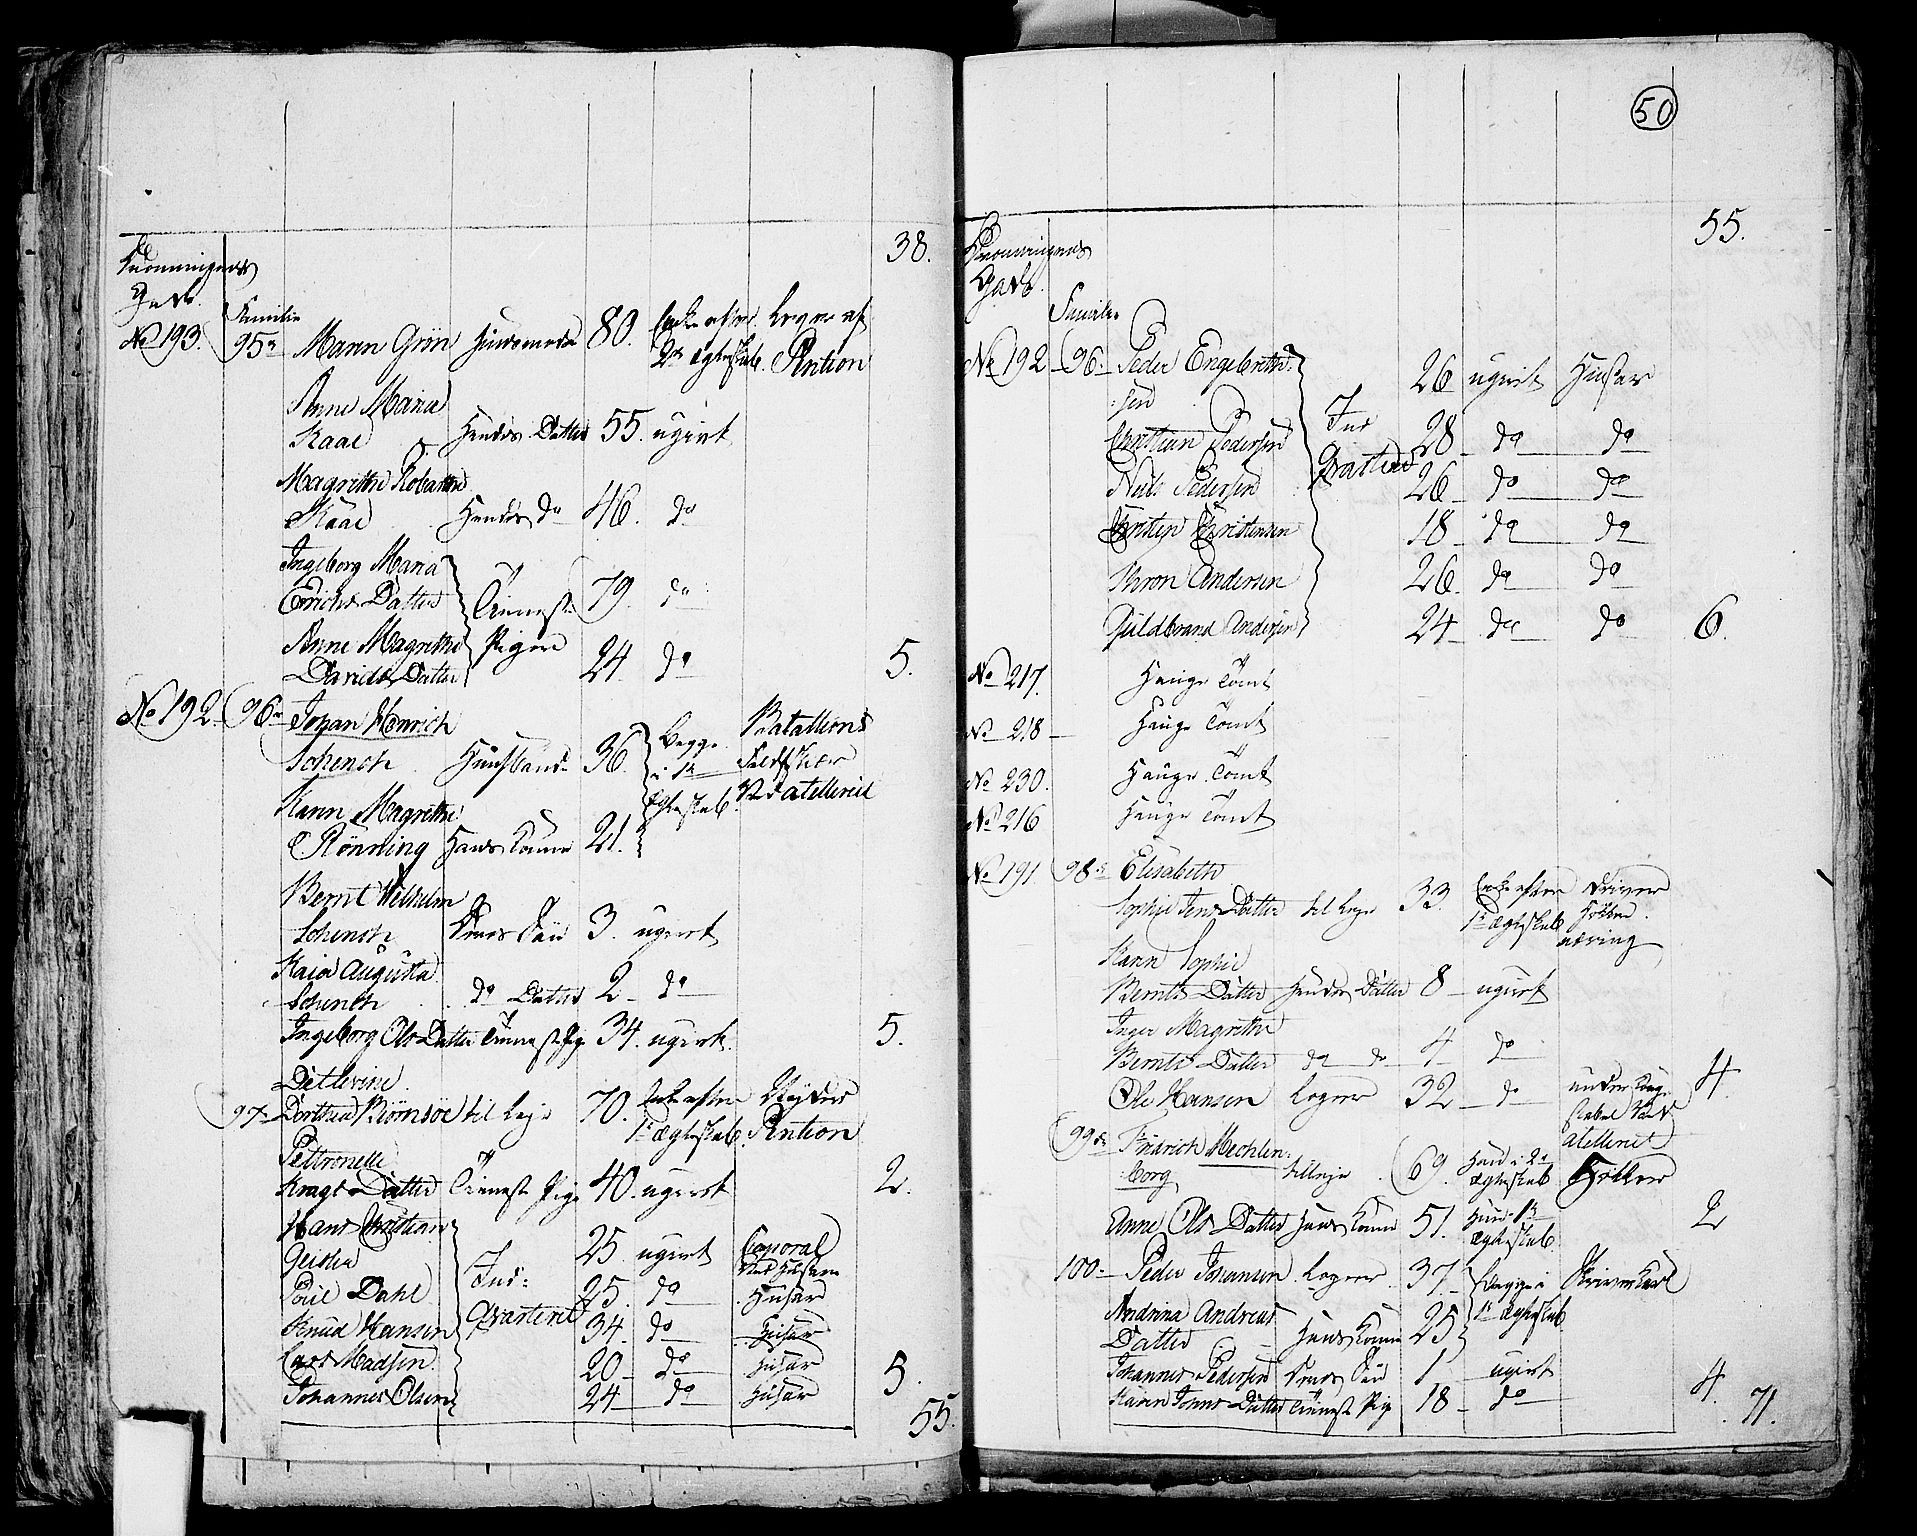 38.
Dronningens
Gade.
Familie
No 193. 95de Maren Grön Huusmoder 80. Enke efter Leger af
2det Ægteskab. Pention
Anne Maria
Kaae Hendes Datter 55. ugivt
Magrethe
Kaae Hendes do 46. do
Ingeborg Maria
Erichs Datter Tieneste 79. do
Anne Magrethe Piger
Davids Datter 24. do 5.
No 192 96de Johan Henrich
Schench Huusbonde 36. Begge i 1te Ægteskab. Batallions Feldskier Ved Artelleriet
Karen Magrethe
Rönning Hans Kone 21.
Bernt Wilhelm
Schench Deres Sön 3. ugivt
Kaia Augusta
Schench do Datter 2 do
Ingeborg Ols Datter Tieneste Pige 34. ugivt. 5.
Ditlevine
97de Dorthea Biörnsöe til Leje 70. Enke efter 1te Ægteskab. Pention
Petronelle
Krags Datter Tieneste Pige 40. ugivt 2.
Hans Christian
Geisler Ind: 25. ugivt Corporal Ved Husarene
Poul Dahl qvarteret 25. do Husar
Knud Hansen 34. do Husar
Lars Madsen 20 do Husar 5.
Johannes Olsen 24 do Husar
55.
50
55.
Dronningens
Gade.
Familie
No 192 96. Peder Engebreth:
:sen 26 ugivt Husar
Christian Pedersen Ind 28 do do
Niels Pedersen qvarteret 26 do do
Christen Christensen 18 do do
Andersen 26 do do
Guldbrand Andersen 24 do do 6.
No 217. Hauge Tomt
No 218 Hauge Tomt
No 230. Hauge Tomt
No 216 Hauge Tomt
No 191 98de Elisabeth
Sophie Jens Datter til Leje 33. Enke efter 1te Ægteskab Driver Höker næring
Karen Sophie
Bernts Datter Hendes Datter 8 ugivt
Inger Magrethe
Bernts Datter do do 4 do
Ole Hansen Logerer 32 do under Konstabel Ved Artelleriet 4.
99de Fridrich Mechlen:
:borg til Leje 69. Hand i 2det Ægteskab Höker
Anne Ols Datter Hans Kone 51. Hun i 1te Ægteskab. 2
100 Peder Johansen Logerer 37. Begge i 1te Ægteskab Skriverkarl
Andrina Andreas
Datter Hans Kone 25
Johannes Pedersen Deres Sön 1 ugivt
Karen Jens Datter Tieneste Pige 18 do 4.
71.